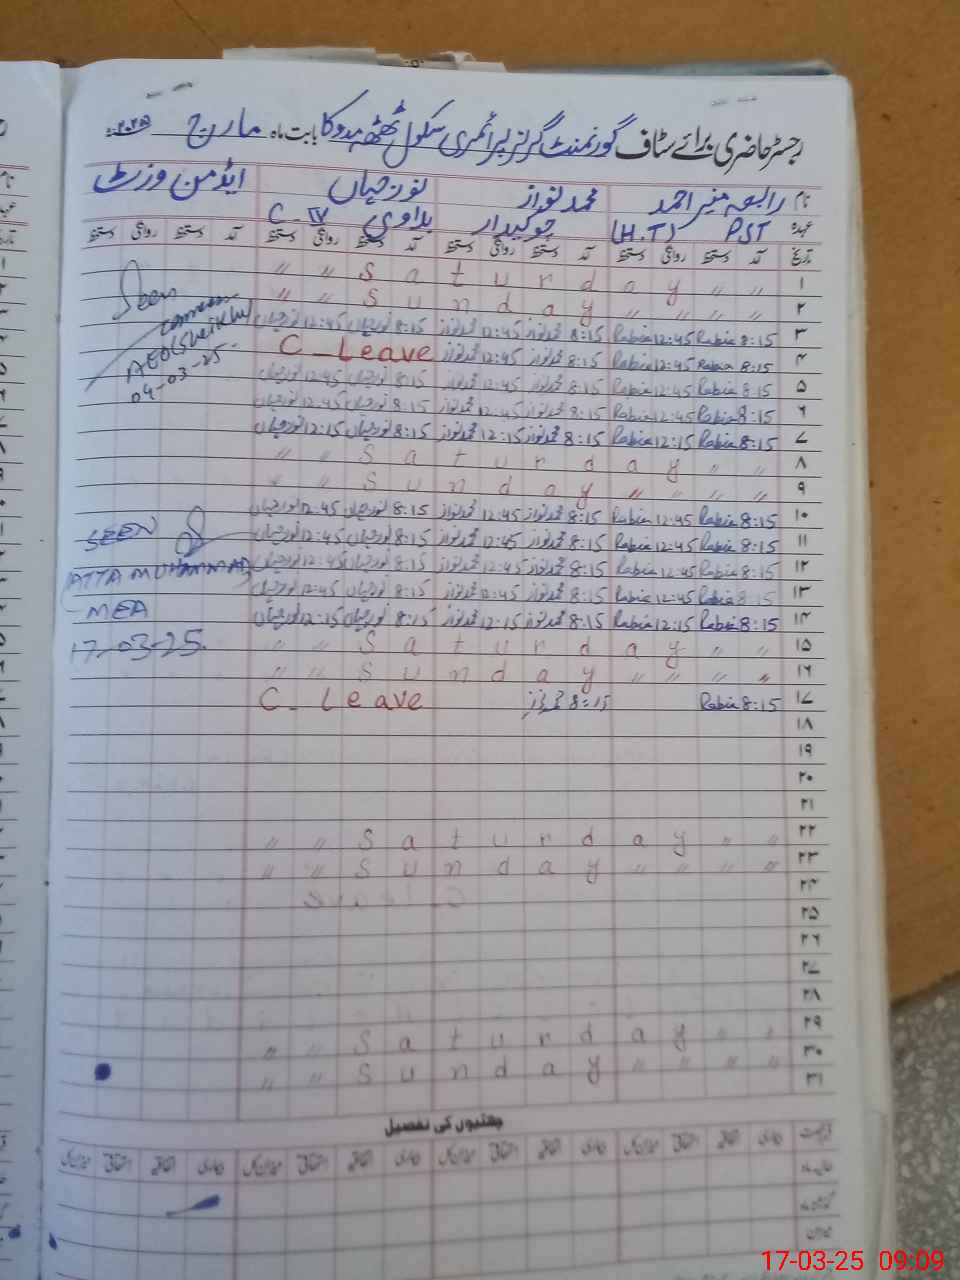 رجسٹر حاضری برائے سٹاف گورنمنٹ گرلز پرائمری سکول ٹھٹھہ مدوکا بابت ماہ مارچ ۲۰۲۵ء
نام رابعہ منیر احمد محمد نواز نور جہاں ایڈمن وزٹ
عہدہ PST (H.T) چوکیدار یداوی C-IV
تاریخ آمد دستخط روانگی دستخط آمد دستخط روانگی دستخط آمد دستخط روانگی دستخط آمد دستخط روانگی دستخط
۱ " " S a t u r d a y " "
۲ " " S u n d a y " " " "
۳ Rabia 8:15 Rabia 12:45 محمد نواز 8:15 محمد نواز 12:45 نور جہاں 8:15 نور جہاں 12:45
۴ Rabia 8:15 Rabia 12:45 محمد نواز 8:15 محمد نواز 12:45 C_Leave
۵ Rabia 8:15 Rabia 12:45 محمد نواز 8:15 محمد نواز 12:45 نور جہاں 8:15 نور جہاں 12:45
۶ Rabia 8:15 Rabia 12:45 محمد نواز 8:15 محمد نواز 12:45 نور جہاں 8:15 نور جہاں 12:45
۷ Rabia 8:15 Rabia 12:15 محمد نواز 8:15 محمد نواز 12:15 نور جہاں 8:15 نور جہاں 12:15
۸ " " S a t u r d a y " "
۹ " " S u n d a y " " " "
۱۰ Rabia 8:15 Rabia 12:45 محمد نواز 8:15 محمد نواز 12:45 نور جہاں 8:15 نور جہاں 12:45
۱۱ Rabia 8:15 Rabia 12:45 محمد نواز 8:15 محمد نواز 12:45 نور جہاں 8:15 نور جہاں 12:45
۱۲ Rabia 8:15 Rabia 12:45 محمد نواز 8:15 محمد نواز 12:45 نور جہاں 8:15 نور جہاں 12:45
۱۳ Rabia 8:15 Rabia 12:45 محمد نواز 8:15 محمد نواز 12:45 نور جہاں 8:15 نور جہاں 12:45
۱۴ Rabia 8:15 Rabia 12:15 محمد نواز 8:15 محمد نواز 12:15 نور جہاں 8:15 نور جہاں 12:15
۱۵ " " S a t u r d a y " "
۱۶ " " S u n d a y " " " "
۱۷ Rabia 8:15 محمد نواز 8:15 C_Leave
۱۸
۱۹
۲۰
۲۱
۲۲ " " S a t u r d a y " "
۲۳ " " S u n d a y " " " "
۲۴
۲۵
۲۶
۲۷
۲۸
۲۹ " " S a t u r d a y " "
۳۰ " " S u n d a y " " " "
۳۱
Seen
AEO (Sheikhu)
04-03-25
SEEN
ATTA MUHAMMAD
MEA
17-03-25
چھٹیوں کی تفصیل
اتفاقیہ استحقاقیہ میزان کل
17-03-25 09:09